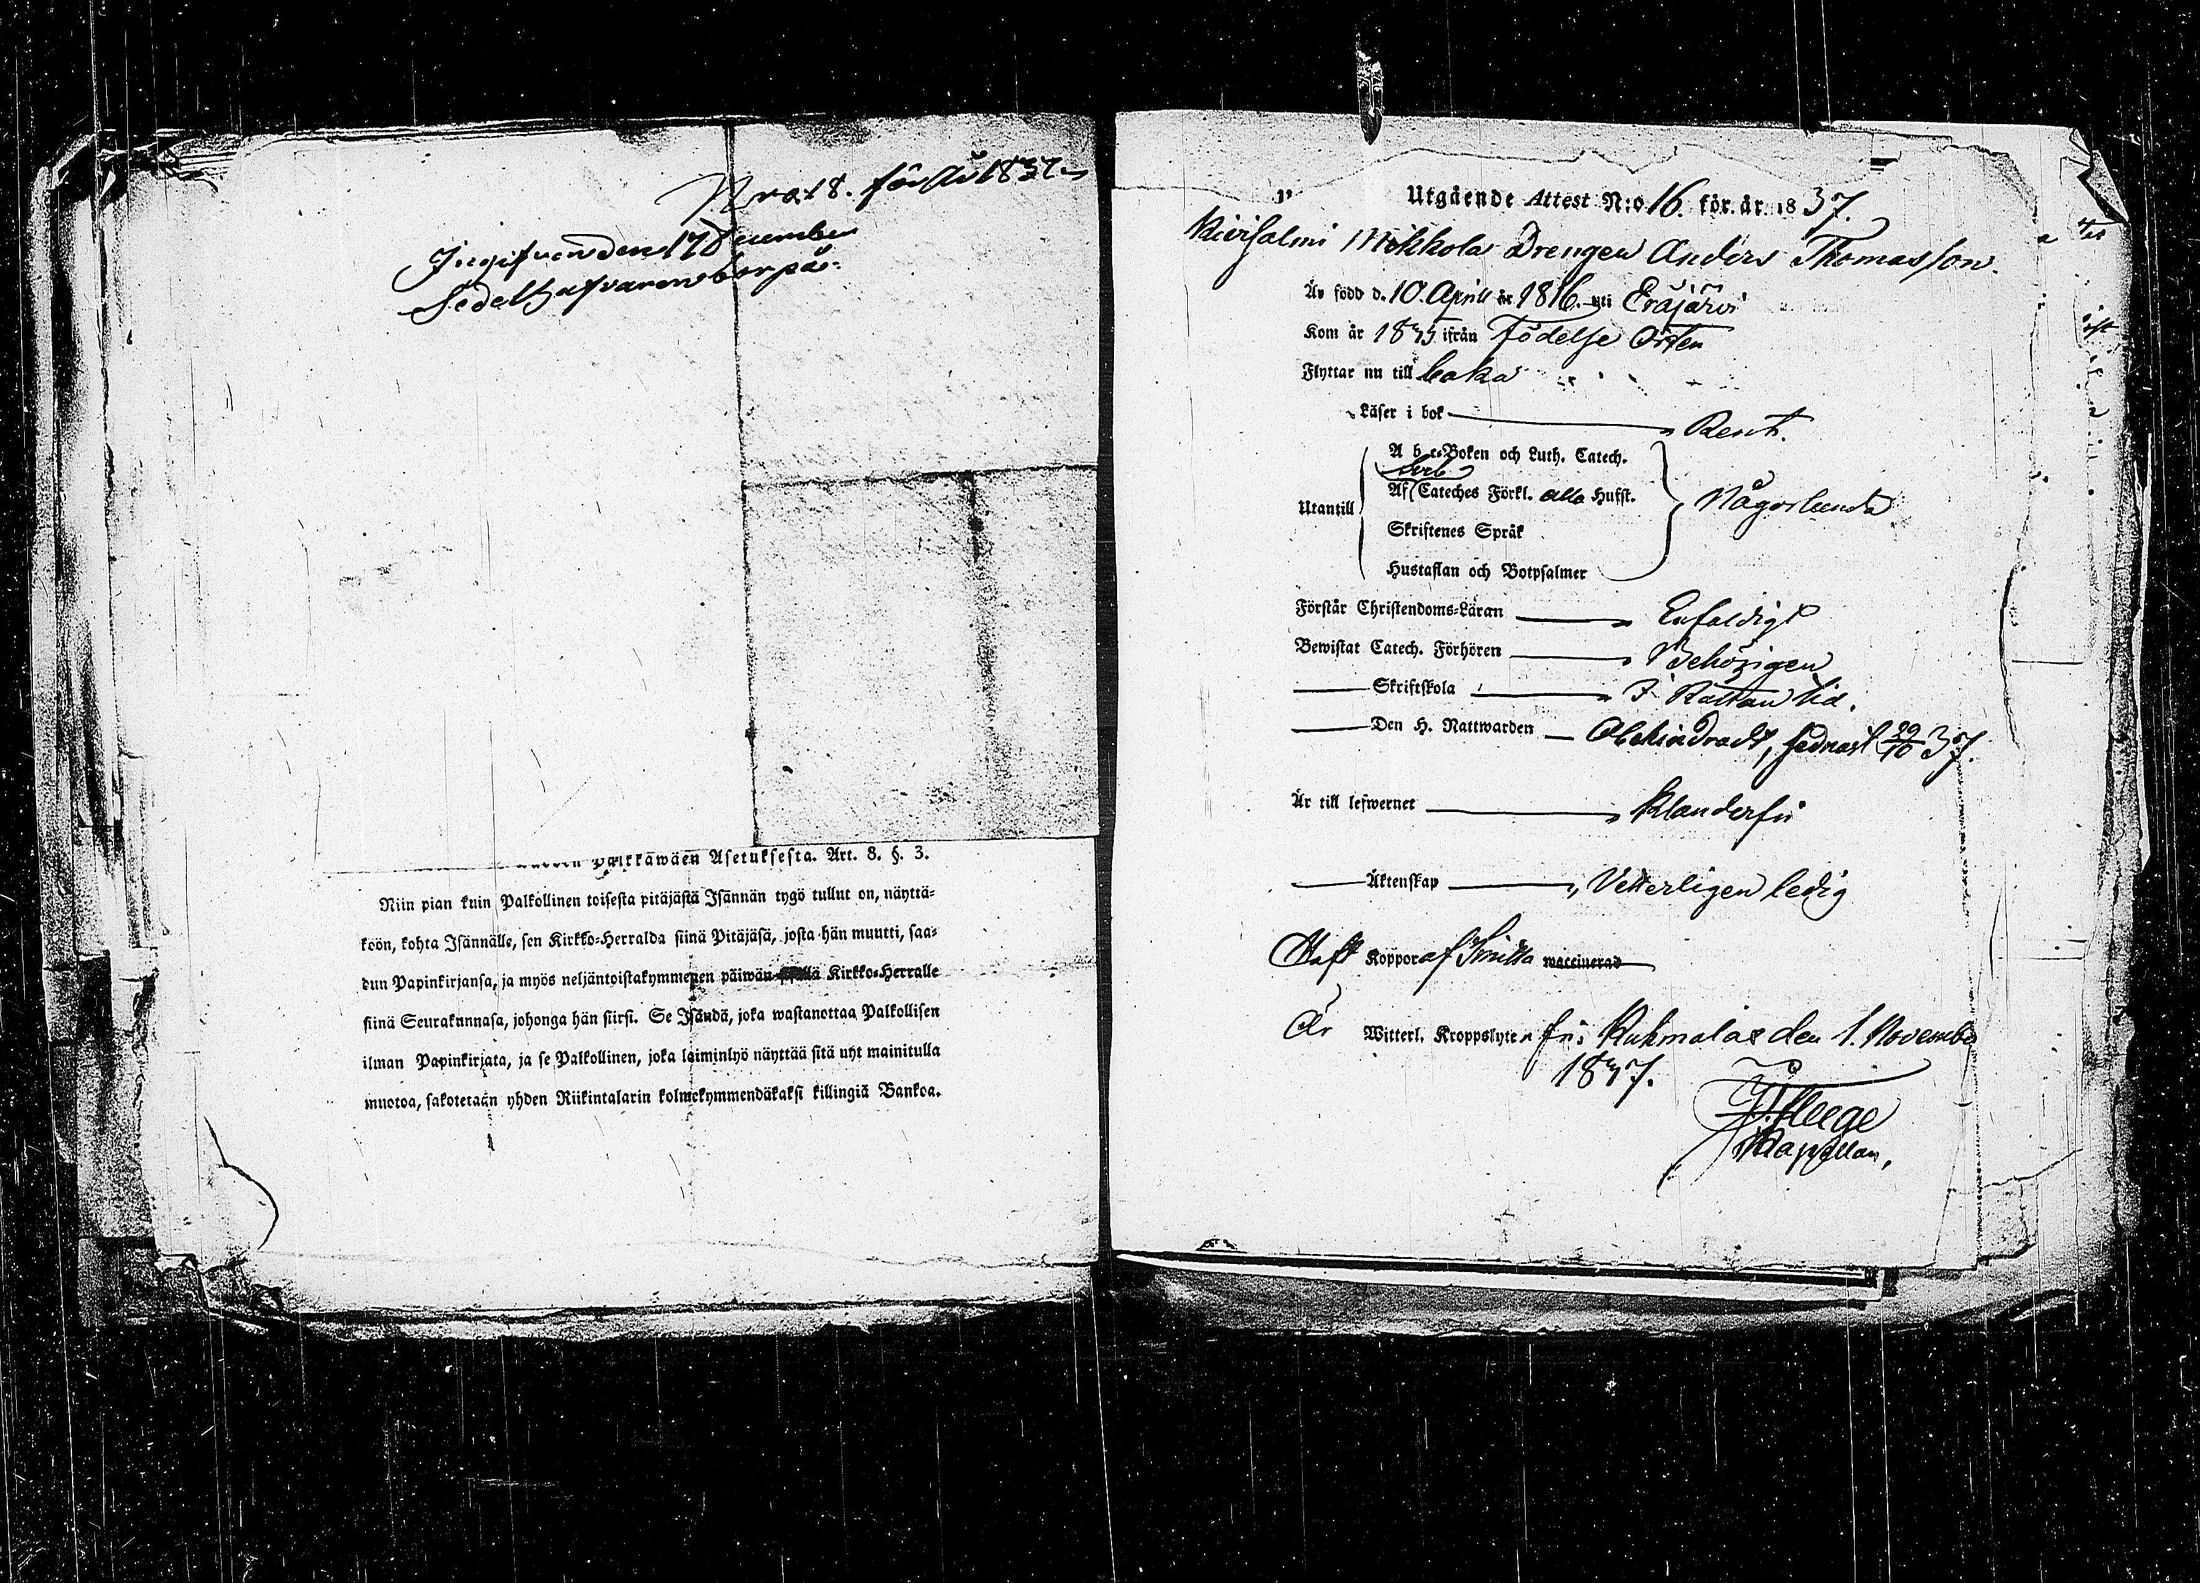 Nro 18. för År 1837
Ingifven den 17 December
Palkkawäen Asetuksesta. Art. 8. §. 3.
Niin pian kuin Palkollinen toisesta pitäjästä Isännän tygö tullut on, näyttä-
köön, kohta Isännälle, sen Kirkko-Herralda siinä Pitäjäsä, josta hän muutti, saa-
dun Papinkirjansa, ja myös neljäntoistakymmenen päiwän Kirkko-Herralle
siinä Seurakunnasa, johonga hän siirsi. Se Isändä, joka wastanottaa Palkollisen
ilman Papinkirjata, ja se Palkollinen, joka laiminlyö näyttää sitä uyt mainitulla
muotoa, sakotetaan yhden Riikintalarin kolmekymmendäkaksi killingiä Bankoa.
Utgående Attest N:o 16. för. år. 1837.
Kivisalmi Mokkola Drengen Anders Thomasson.
Är född d. 10. Aprill år 1816. uti Eräjärvi
Kom år 1835 ifrån Födelse Orten
Flyttar nu till baka
Läser i bok Rent.
A b c-Boken och Luth. Catech.
Utantill
Af Cateches Förkl. alla Hufst. Någorlunda
Skriftenes Språk
Hustaflan och Botpsalmer
Förstår Christendoms-Läran Enfaldigt
Bewistat Catech. Förhören Behörigen
Skriftskola I Rättan tid.
Den H. Nattwarden Obehindradt, sednast 29/10 37.
Är till lefwernet Klanderfri
Äktenskap Vetterligen ledig
Haft Koppor af Smitta waccinerad
Är Witterl. Kroppslyten fri; Kuhmalax den 1. November
1837.
Kapellan,